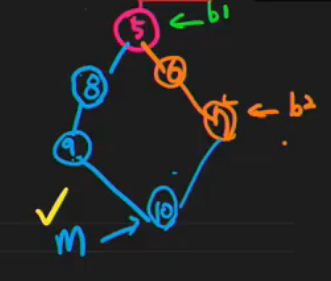 5 ← b1
8 6
7 ← b2
9
10
m →